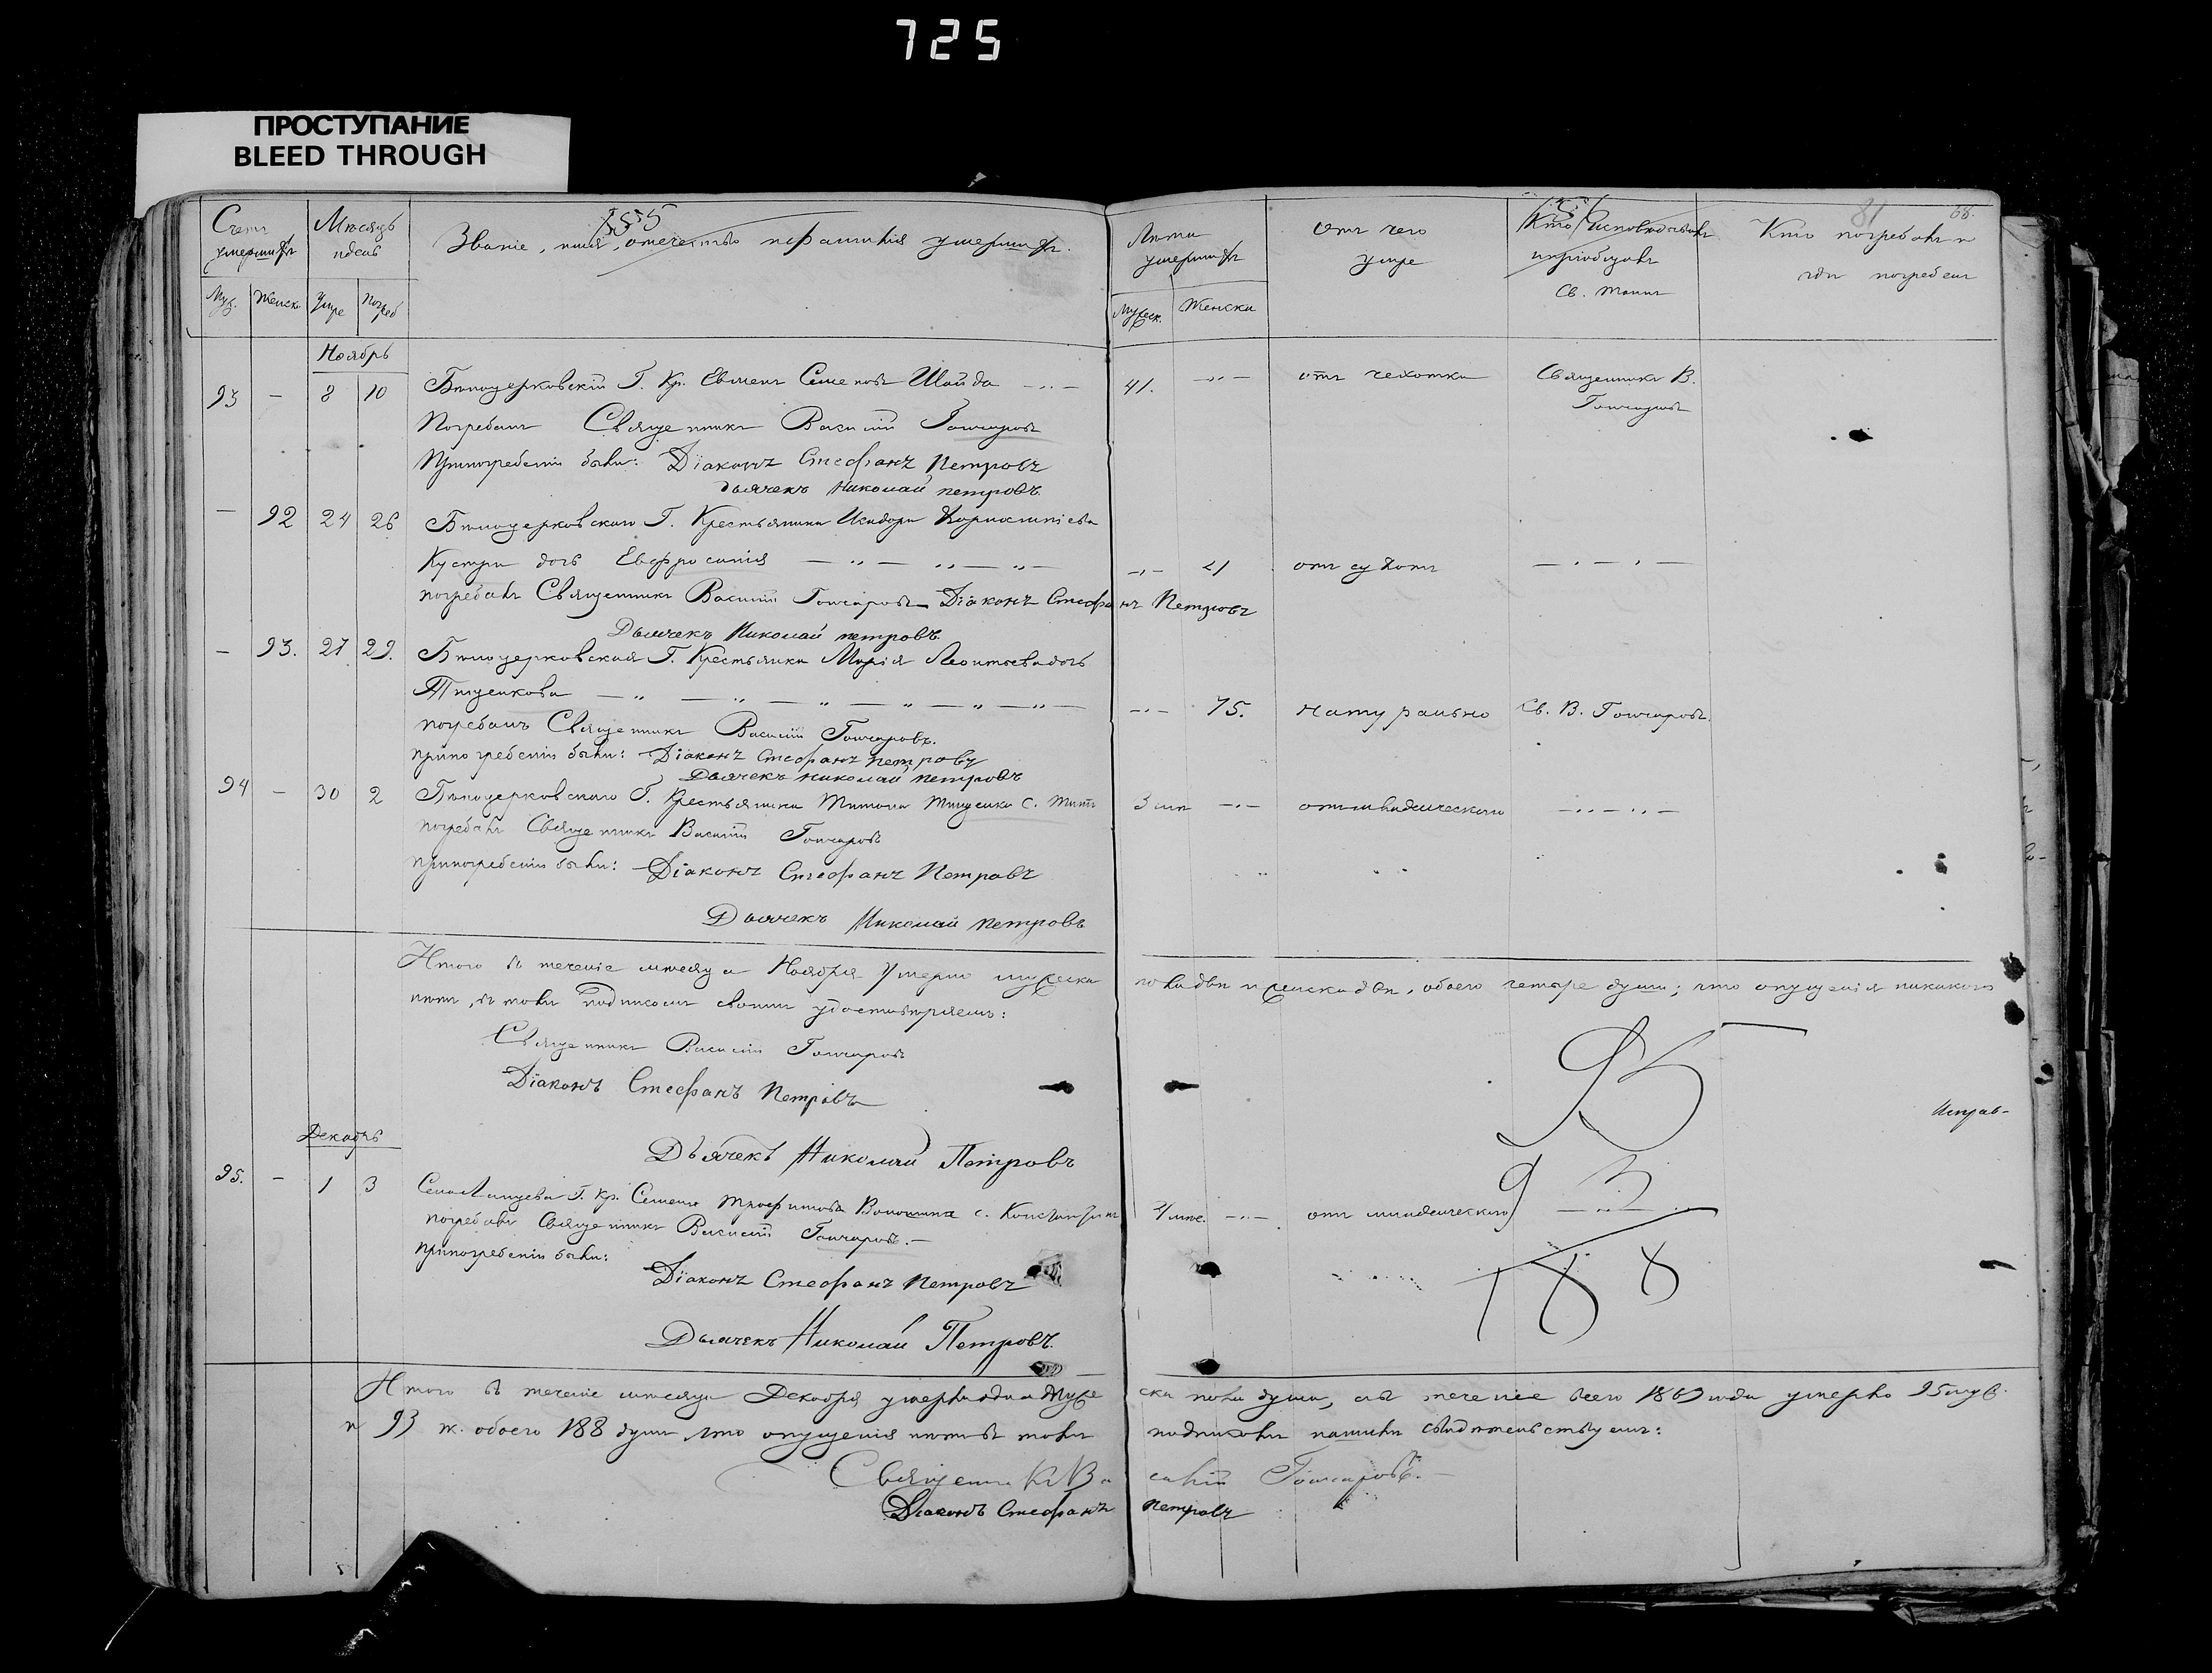 725
ПРОСТУПАНИЕ
BLEED THROUGH
1855
81
Счетъ умершихъ
Мѣсяцъ и день
Званіе, имя, отечество и фамилія умершихъ.
Лѣта умершихъ
Отъ чего умре
Кто исповѣдовалъ и пріобщалъ Св. Таинъ
Кто погребалъ и гдѣ погребены
Муж. Женск. Умре Погреб
Мужеск. Женски
Ноябрь
93 - 8 10 Бѣлоцерковскій Г. Кр. Евмент Семеновъ Шайда 41. отъ чахотки Священникъ В. Гончаровъ
Погребалъ Священникъ Василій Гончаровъ
При погребеніи были: Діаконъ Стефанъ Петровъ
Дьячекъ Николай Петровъ.
- 92 24 26 Бѣлоцерковскаго Г. Крестьянина Исидора
дочь Евфросинія 21 отъ сухотъ
погребалъ Священникъ Василій Гончаровъ Діаконъ Стефанъ Петровъ
Дьячекъ Николай Петровъ.
- 93. 27 29. Бѣлоцерковская Г. Крестьянка Марія Леонтьева дочь
75. натурально Св. В. Гончаровъ.
погребалъ Священникъ Василій Гончаровъ.
при погребеніи были: Діаконъ Стефанъ Петровъ
Дьячекъ Николай Петровъ
94 - 30 2 Бѣлоцерковскаго Г. Крестьянина
погребалъ Священникъ Василій Гончаровъ
При погребеніи были: Діаконъ Стефанъ Петровъ
Дьячекъ Николай Петровъ
Итого въ теченіе мѣсяца Ноября умерло мужеска пола два и женска два, обоего четыре души; что опущенія никакого
нѣтъ, въ томъ подписомъ своимъ удостовѣряемъ:
Священникъ Василій Гончаровъ
Діаконъ Стефанъ Петровъ
Дьячекъ Николай Петровъ
95
93
188
Исправ-
Декабрь
95. - 1 3 Г. Кр. Семена Трофимова с. Константинъ отъ младенческаго
погребалъ Священникъ Василій Гончаровъ.
При погребеніи были:
Діаконъ Стефанъ Петровъ
Дьячекъ Николай Петровъ.
Итого въ теченіе мѣсяца Декабря умерла одна мужеска пола душа, въ теченіе всего года умерло 95 муж.
и 93 ж. обоего 188 душъ что опущенія нѣтъ въ томъ подписомъ нашимъ свидѣтельствуемъ:
Священникъ Василій Гончаровъ.
Діаконъ Стефанъ Петровъ